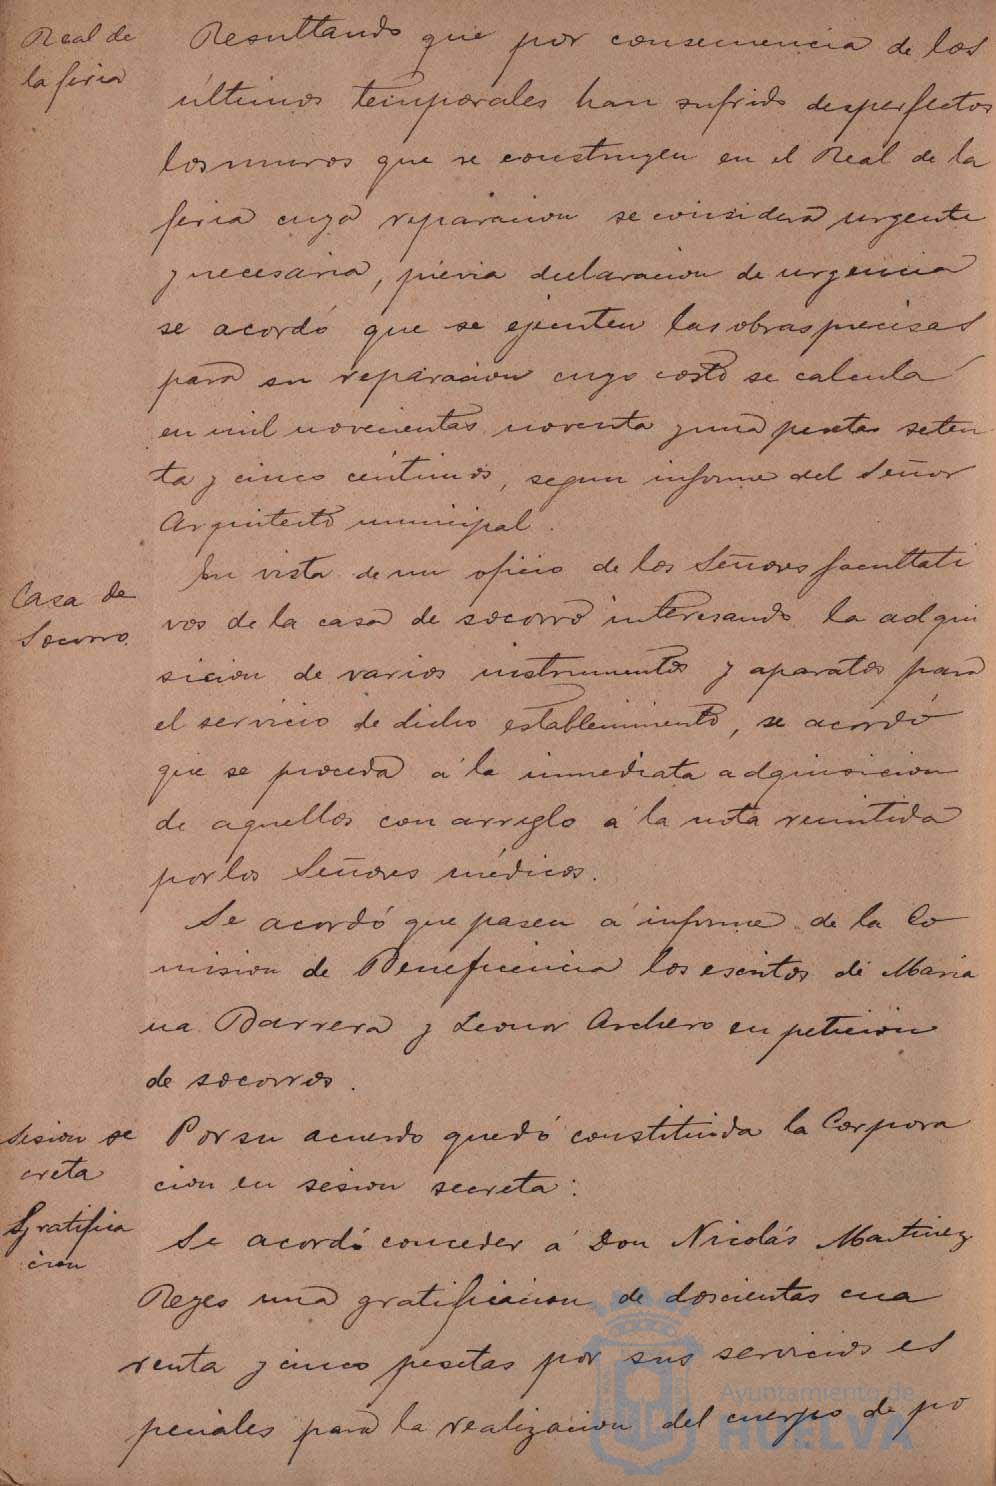 Real de
la feria
Resultando que por consecuencia de los
últimos temporales han sufrido desperfectos
los muros que se construyen en el Real de la
feria cuya reparacion se considera urgente
y necesaria, prévia declaracion de urgencia
se acordó que se ejecuten las obras precisas
para su reparacion cuyo costo se calcula
en mil novecientas noventa y una pesetas seten
ta y cinco céntimos, segun informe del Señor
Arquitecto municipal.
Casa de
Socorro.
En vista de un oficio de los Señores facultati
vos de la casa de socorro interesando la adqui
sicion de varios instrumentos y aparatos para
el servicio de dicho establecimiento, se acordó
que se proceda á la inmediata adquisicion
de aquellos con arreglo á la nota remitida
por los Señores médicos.
Se acordó que pasen á informe de la Co
mision de Beneficencia los escritos de Maria
na Barrera y Leonor Archero en peticion
de socorros.
Sesion se
creta
Por su acuerdo quedó constituida la Corpora
cion en sesion secreta:
Gratifica
cion
Se acordó conceder á Don Nicolás Martinez
Reyes una gratificacion de doscientas cua
renta y cinco pesetas por sus servicios es
peciales para la realizacion del cuerpo de po
Ayuntamiento de
HUELVA